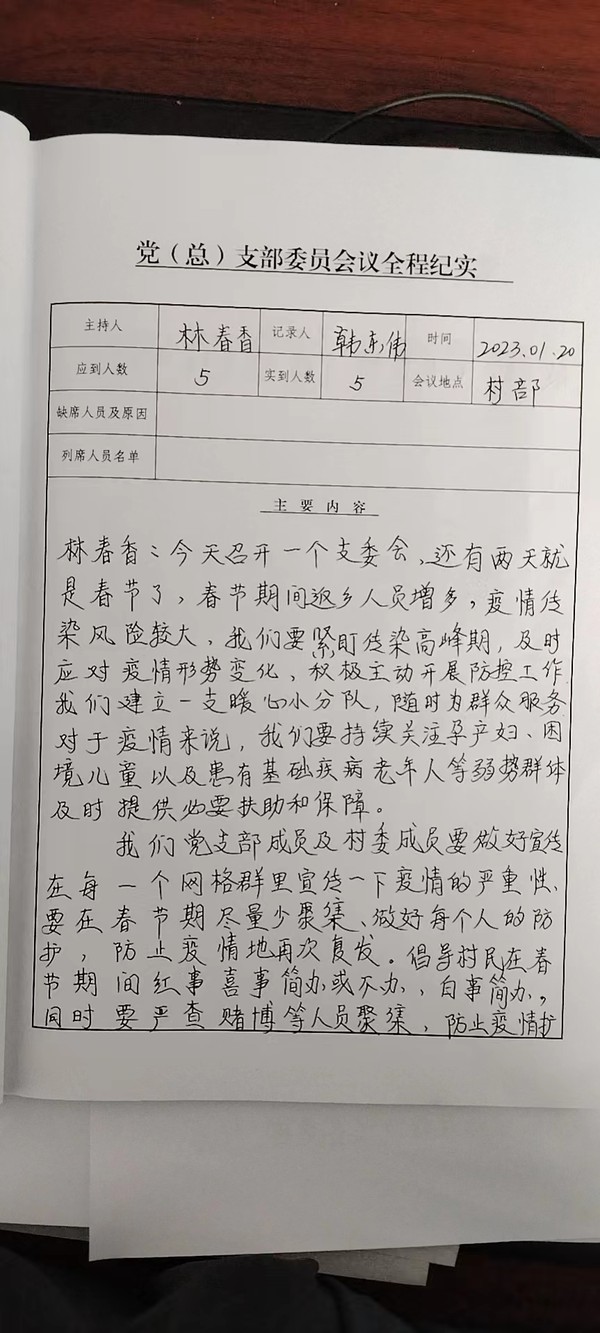 党（总）支部委员会议全程纪实
主持人 林春香 记录人 韩东伟 时间 2023.01.20
应到人数 5 实到人数 5 会议地点 村部
缺席人员及原因
列席人员名单
主要内容
林春香：今天召开一个支委会、还有两天就
是春节了，春节期间返乡人员增多，疫情传
染风险较大、我们要紧盯传染高峰期，及时
应对疫情形势变化、积极主动开展防控工作
我们建立一支暖心小分队，随时为群众服务
对于疫情来说，我们要持续关注孕产妇、困
境儿童以及患有基础疾病老年人等弱势群体
及时提供必要扶助和保障。
我们党支部成员及村委成员要做好宣传
在每一个网格群里宣传一下疫情的严重性、
要在春节期尽量少聚集、做好每个人的防
护，防止疫情地再次复发。倡导村民在春
节期间红事喜事简办或不办、白事简办。
同时要严查赌博等人员聚集，防止疫情扩